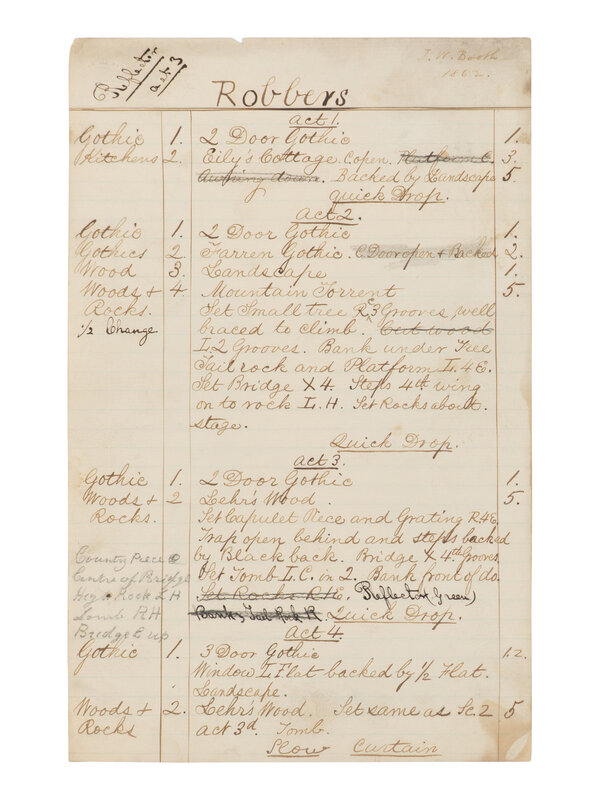 Reflector
act 3
J. W. Booth
1862.
Robbers
act 1.
Gothic 1. 2 Door Gothic 1.
Kitchens 2. Eily's Cottage. C open. Platform C. 3.
Awning down. Backed by Landscape 5
Quick Drop.
Act 2.
Gothic 1. 2 Door Gothic 1.
Gothics 2 Farren Gothic. C. Door open & Backed 2.
Wood 3. Landscape 1.
Woods & 4. Mountain Torrent 5.
Rocks. Set Small tree R 3 Grooves well
1/2 Change braced to climb. Cut wood
L. 2 Grooves. Bank under Tree
Tail rock and Platform L. 4 E.
Set Bridge X 4. Steps 4th wing
on to rock L. H. Set Rocks about
stage.
Quick Drop.
act 3.
Gothic 1. 2 Door Gothic 1.
Woods & 2 Lehr's Wood. 5.
Rocks. Set Capulet Piece and Grating R. 4 E.
Trap open behind and steps backed
County Piece by Black back. Bridge X 4th Grooves
Centre of Bridge Set Tomb L. C. in 2. Bank front of do.
High Rock L H Set Rocks R H E. Reflector (Green)
Tomb R H Bank & Tail Rock R. Quick Drop.
Bridge C up act 4.
Gothic 1. 3 Door Gothic 1.2.
Window L. Flat backed by 1/2 Flat.
Landscape.
Woods & 2. Lehr's Wood. Set same as Sc. 2 5
Rocks act 3d. Tomb.
Slow Curtain